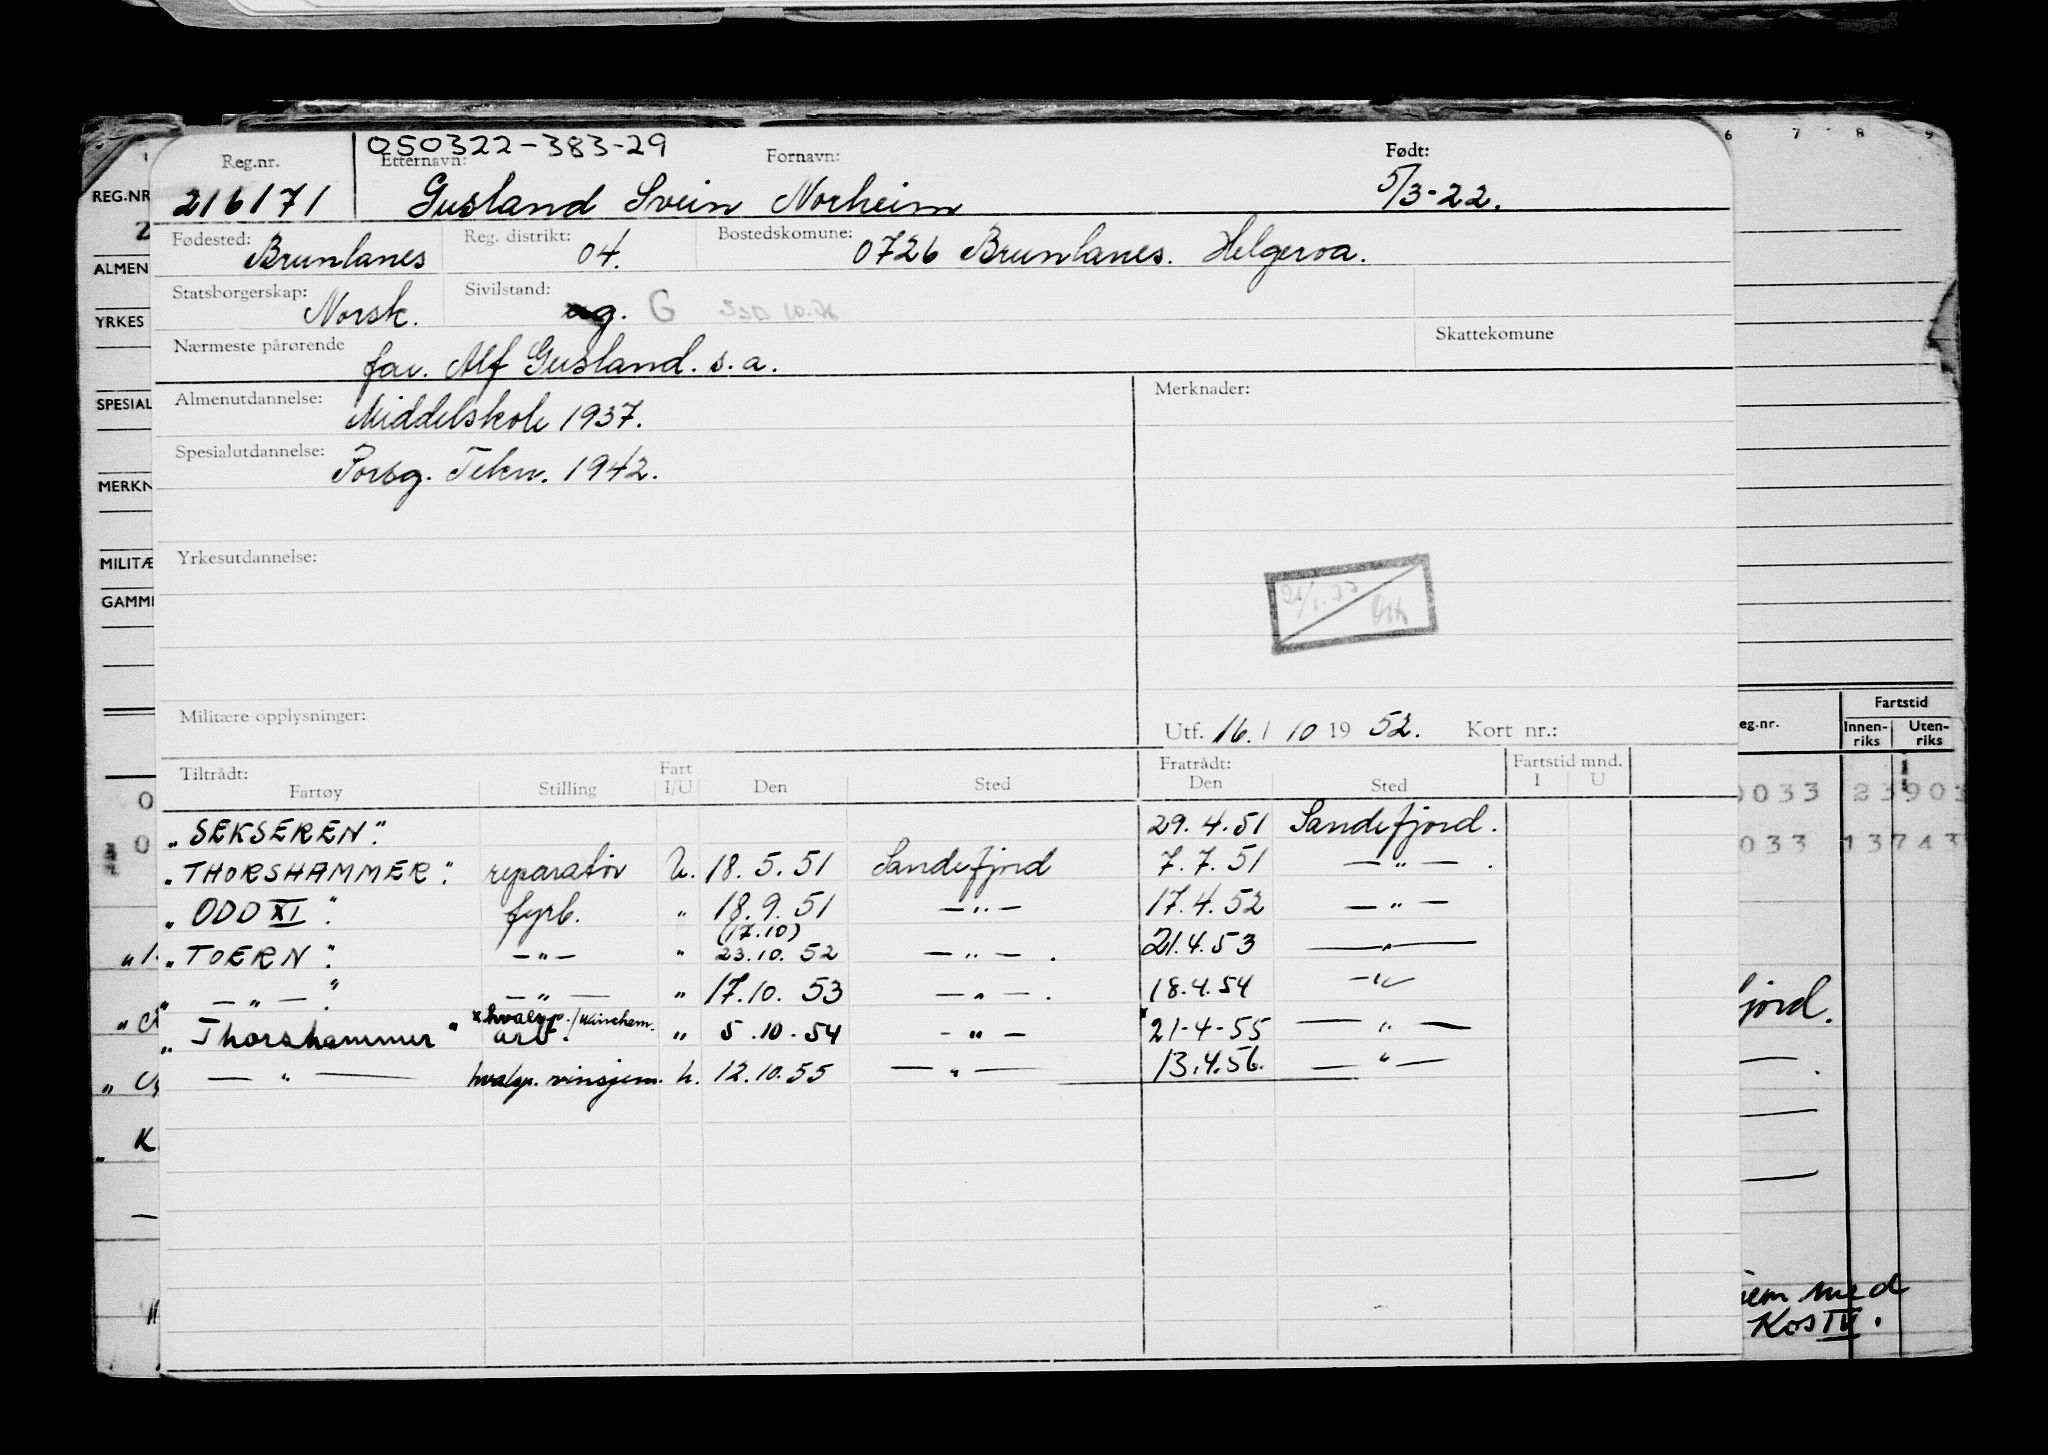 6 7 8 9
050322-383-29
Reg.nr. Etternavn: Fornavn: Født:
REG.NR
216171 Gusland Svein Norheim 5/3-22.
2
Fødested: Brunlanes Reg. distrikt: 04. Bostedskomune: 0726 Brunlanes. Helgeroa.
ALMEN
Statsborgerskap: Norsk. Sivilstand: ug. G
YRKES
Nærmeste pårørende far. Alf Gusland. s.a. Skattekomune
SPESIAL
Almenutdannelse: Middelskole 1937. Merknader:
Spesialutdannelse: Porsg. Tekn. 1942.
MERKN
Yrkesutdannelse:
MILITÆ
GAMM
Militære opplysninger: Utf. 16. / 10 19 52. Kort nr.:
eg.nr. Fartstid
Innen-riks Uten-riks
Tiltrådt: Fratrådt: Fartstid mnd.
Fartøy Stilling Fart I/U Den Sted Den Sted I U
0033 23903
„SEKSEREN" 29.4.51 Sandefjord.
0033 13743
„THORSHAMMER" reparatør U. 18.5.51 Sandefjord 7.7.51 — " — .
„ODD XI" fyrb. " 18.9.51 — " — 17.4.52 — " —
(17.10)
„TOERN" — " — " 23.10.52 — " — . 21.4.53 — " —
" — " — " — " — " 17.10.53 — " — . 18.4.54 — " —
x hvalsp./winchem.
„Thorshammer" arb. " 5.10.54 — " — x 21-4-55 — " —
— " — hvalsp. vinsjem. U. 12.10.55 — " — 13.4.56. — " —
jord.
K
med
Kos IV.